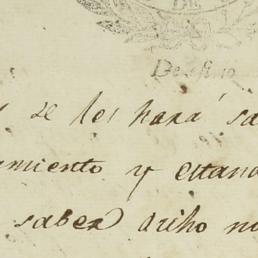 DE
se les hará sa
amiento y estan
saber dicho no